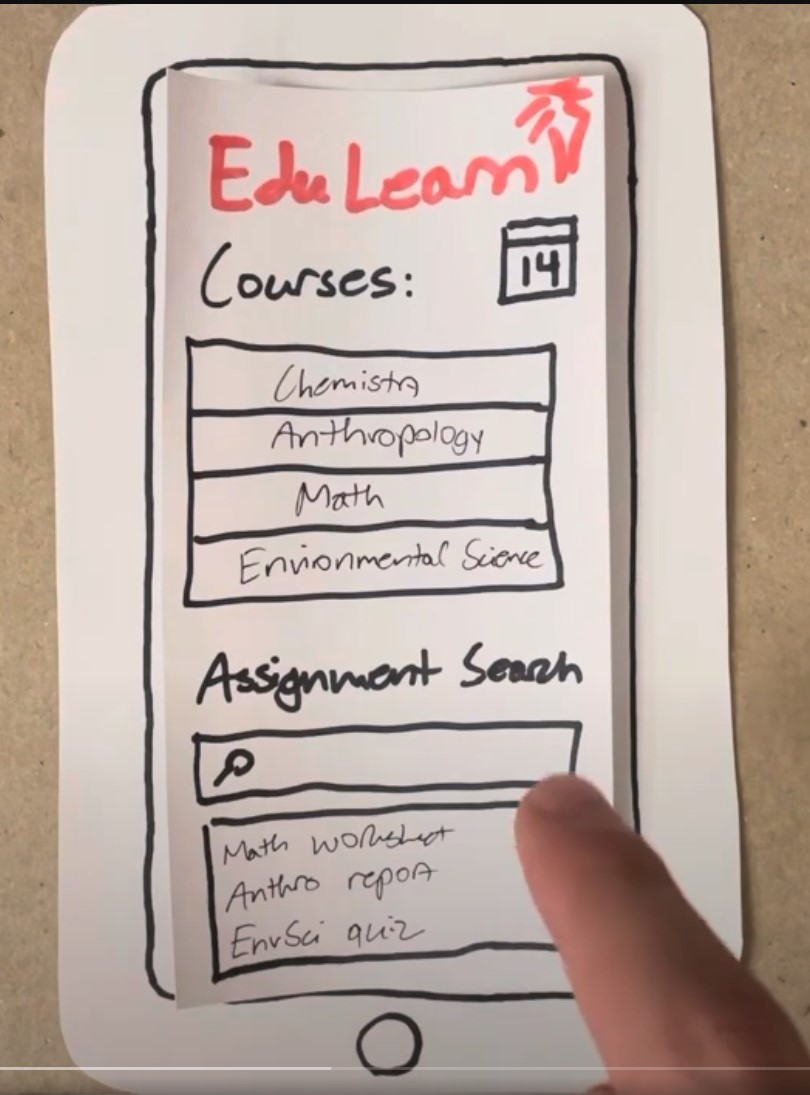 Edu Learn
Courses:
14
Chemistry
Anthropology
Math
Environmental Science
Assignment Search
Math worksheet
Anthro report
EnvSci quiz